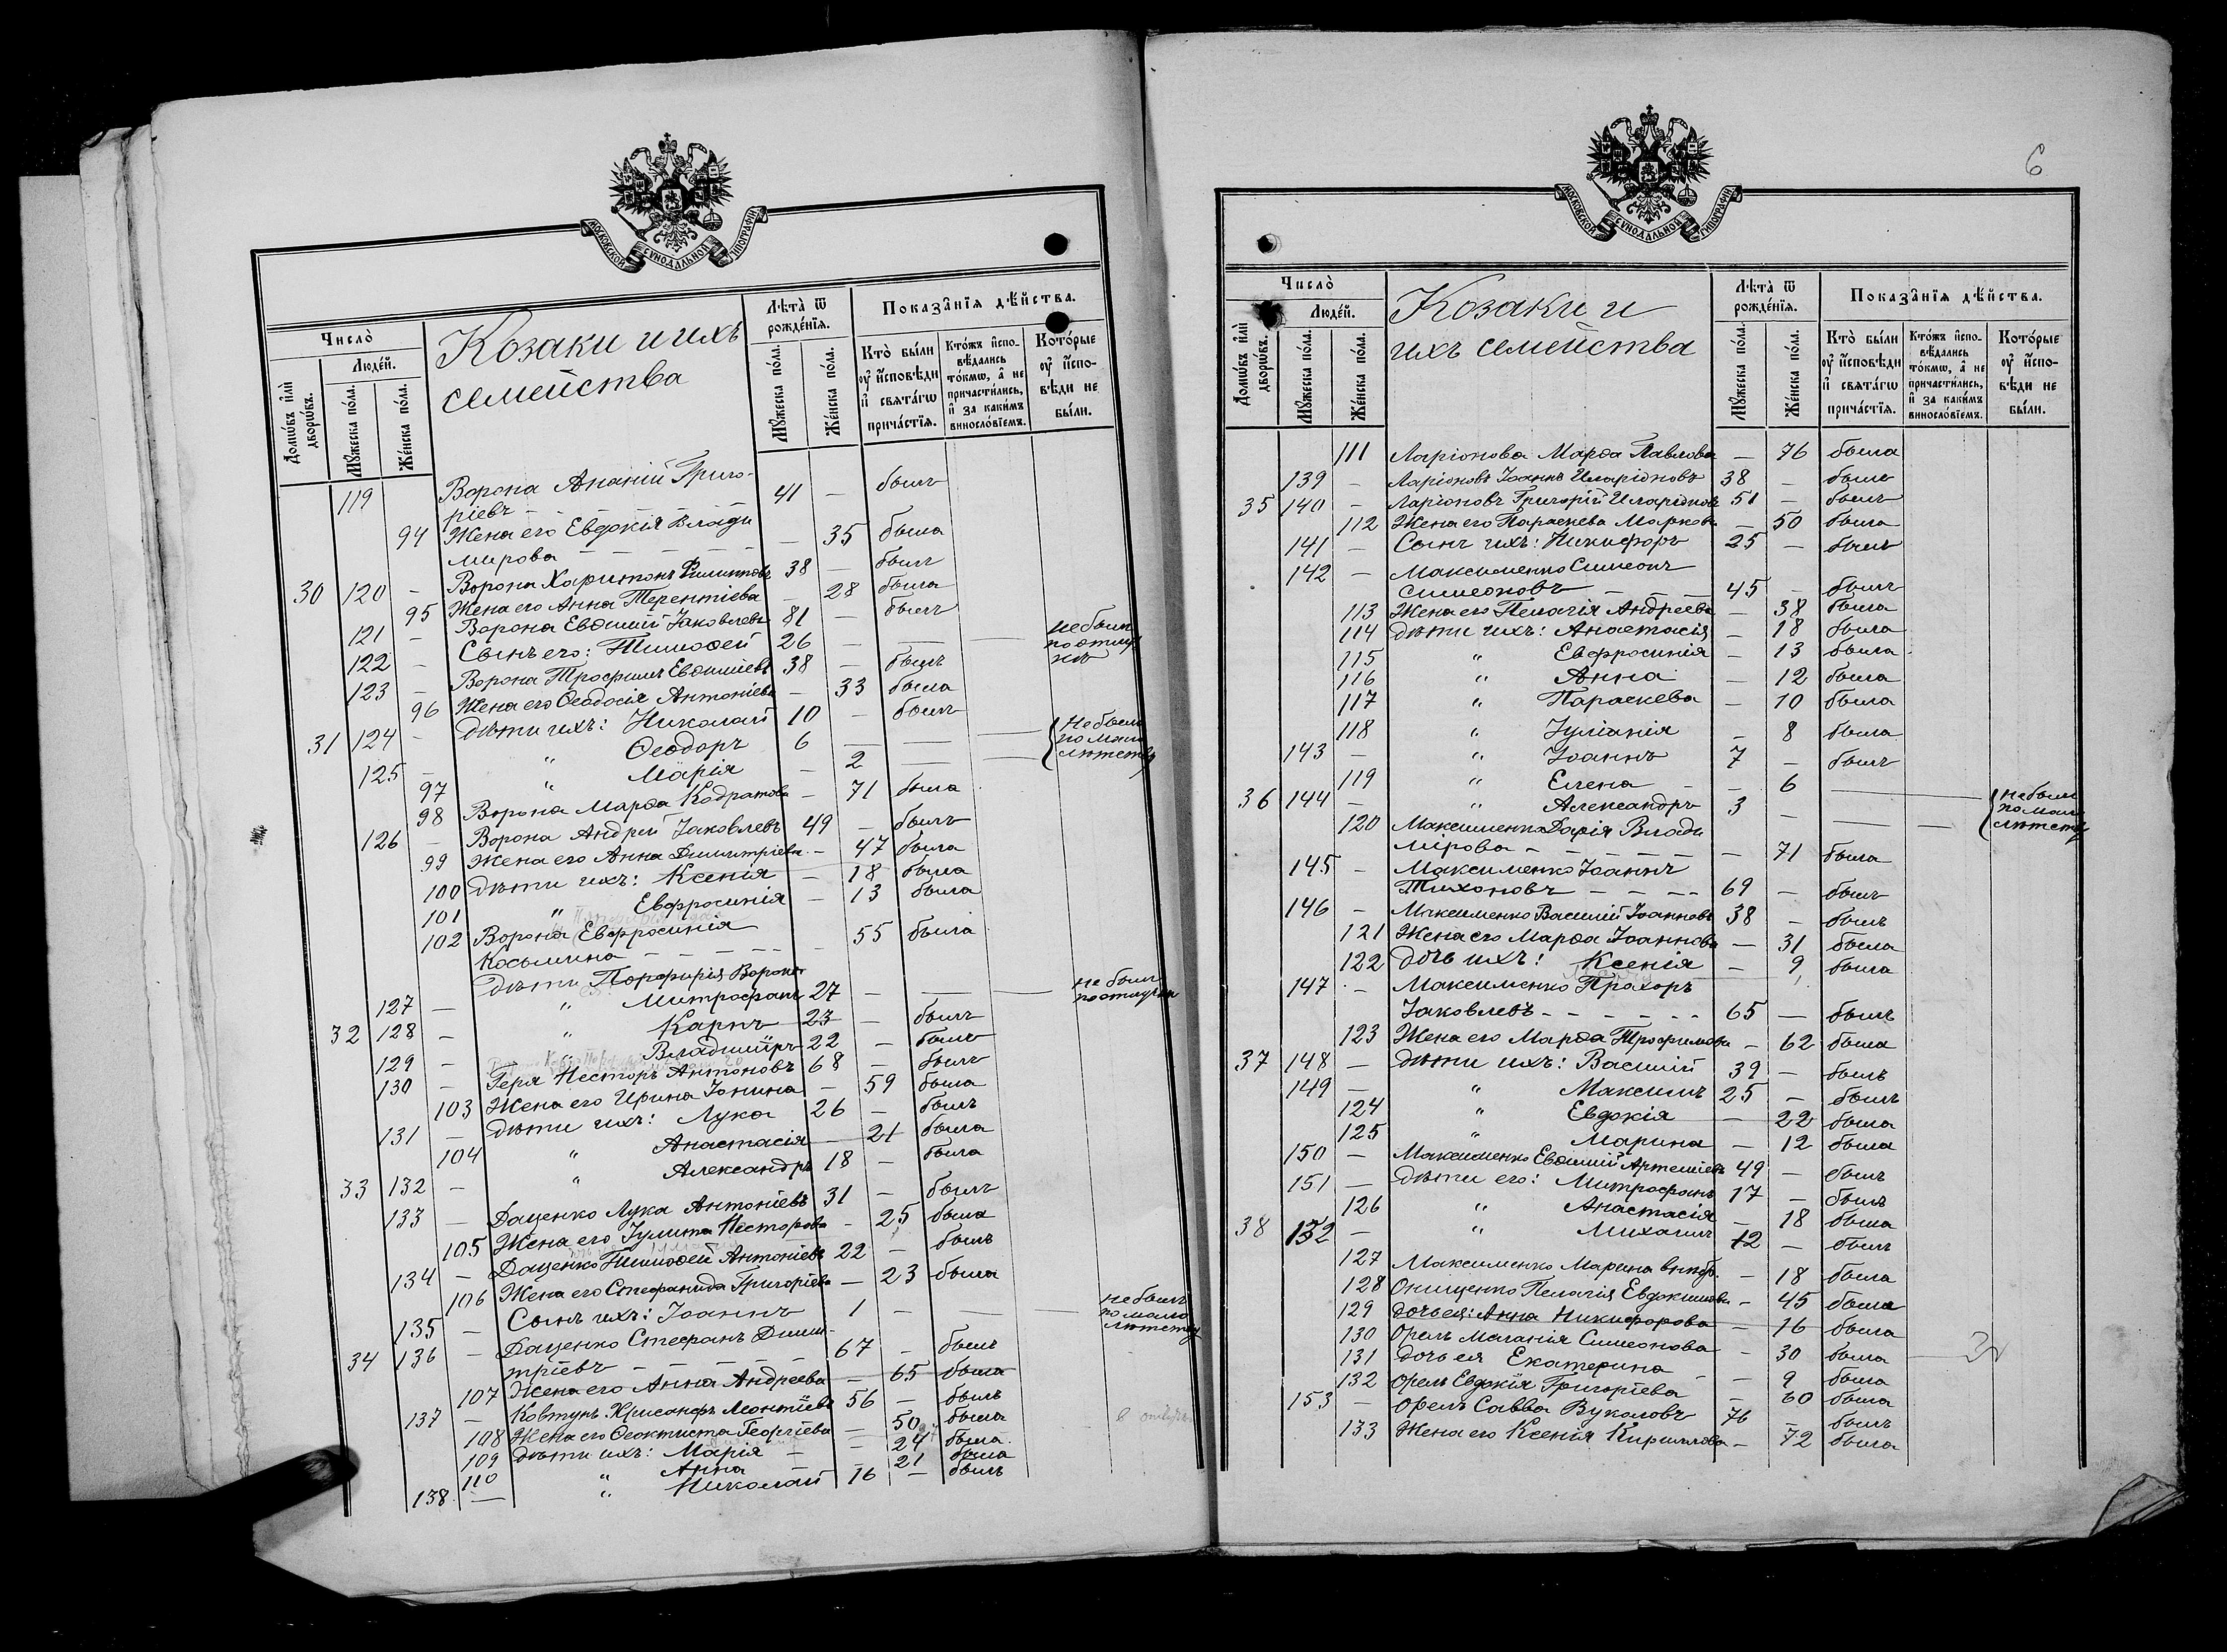 МОСКОВСКОЙ СУНОДАЛЬНОЙ ТІПОГРАФІИ
Число̀
Людéй.
Домѡ́въ и҆лѝ дворѡ́въ.
Мꙋ́жеска по́ла.
Же́нска по́ла.
Козаки и ихъ
семейства
Лѣта̀ ѿ
рожде́нїѧ.
Мꙋ́жеска по́ла.
Же́нска по́ла.
Показа̂нїѧ дѣ́йства.
Кто̀ бы́ли
ᲂу҆ и҆́сповѣди
и҆ свѧта́гѡ
прича́стїѧ.
Кто́жъ и҆спо-
вѣ́дались
то́кмѡ, а҆ не
причасти́лись,
и҆ за каки́мъ
винослові́емъ.
Кото́рые
ᲂу҆ и҆спо-
вѣди не
бы́ли.
119 Ворона Ананій Григо-
ріевъ - - - 41 — былъ
94 Жена его Евдокія Влади
мирова - - - — 35 была
30 120 - Ворона Харитонъ Филипповъ 38 — былъ
95 Жена его Анна Терентіева - 28 была
121 - Ворона Евѳимій Іаковлевъ 81 — былъ
122 - Сынъ его: Тимоѳей 26 — — — не былъ по отлуч кѣ
123 - Ворона Трофимъ Евѳиміевъ 38 — былъ
96 Жена его Ѳеодосія Антоніева - 33 была
31 124 - дѣти ихъ: Николай 10 — былъ
125 - " Ѳеодоръ 6 — — — Не были по мало лѣтству
97 " Марія - 2 — —
98 Ворона Марѳа Кодратова - 71 была
126 - Ворона Андрей Іаковлевъ 49 — былъ
99 Жена его Анна Димитріева - 47 была
100 дѣти ихъ: Ксенія - 18 была
101 " Евфросинія - 13 была
102 Ворона Евфросинія
Косьмина - - - - 55 была
дѣти Порфирія Вороны
127 - " Митрофанъ 27 — — — не былъ по отлучкѣ
32 128 - " Карпъ 23 — былъ
129 - " Владиміръ 22 — былъ
130 - Геря Несторъ Антоновъ 68 — былъ
103 Жена его Ирина Іонина - 59 была
131 - дѣти ихъ: Лука 26 — былъ
104 " Анастасія - 21 была
33 132 - " Александръ 18 — была
133 - Даценко Лука Антоніевъ 31 — былъ
105 Жена его Іулита Несторова - 25 была
134 - Даценко Тимоѳей Антоніевъ 22 — былъ
106 Жена его Стефанида Григоріева - 23 была
135 - Сынъ ихъ: Іоаннъ 1 - — — не былъ по мало лѣтству
34 136 - Даценко Стефанъ Дими-
тріевъ - - - 67 - былъ
107 Жена его Анна Андреева - 65 была
137 - Ковтунъ Хрисанфъ Леонтіевъ 56 - былъ
108 Жена его Ѳеоктиста Георгіева - 50 была
109 дѣти ихъ: Марія - 24 была
110 " Анна - 21 была
138 — " Николай 16 - былъ
6
МОСКОВСКОЙ СУНОДАЛЬНОЙ ТІПОГРАФІИ
Число̀
Людéй.
Домѡ́въ и҆лѝ дворѡ́въ.
Мꙋ́жеска по́ла.
Же́нска по́ла.
Козаки и
ихъ семейства
Лѣта̀ ѿ
рожде́нїѧ.
Мꙋ́жеска по́ла.
Же́нска по́ла.
Показа̂нїѧ дѣ́йства.
Кто̀ бы́ли
ᲂу҆ и҆́сповѣди
и҆ свѧта́гѡ
прича́стїѧ.
Кто́жъ и҆спо-
вѣ́дались
то́кмѡ, а҆ не
причасти́лись,
и҆ за каки́мъ
винослові́емъ.
Кото́рые
ᲂу҆ и҆спо-
вѣди не
бы́ли.
111 Ларіонова Марѳа Павлова — 76 была
139 - Ларіоновъ Іоаннъ Иларіоновъ 38 - былъ
35 140 - Ларіоновъ Григорій Иларіоновъ 51 - былъ
112 Жена его Параскева Маркова - 50 была
141 - Сынъ ихъ: Никифоръ 25 - былъ
142 - Максименко Симеонъ
Симеоновъ - - - 45 - былъ
113 Жена его Пелагія Андреева - 38 была
114 дѣти ихъ: Анастасія - 18 была
115 " Евфросинія - 13 была
116 " Анна - 12 была
117 " Параскева - 10 была
118 " Іуліанія - 8 была
143 - " Іоаннъ 7 - былъ
119 " Елена - 6 — —
36 144 - " Александръ 3 - — — не были по мало лѣтству
120 Максименко Дарія Влади
мірова - - - - 71 была
145 - Максименко Іоаннъ
Тихоновъ - - - 69 - былъ
146 - Максименко Василій Іоанновъ 38 - былъ
121 Жена его Марѳа Іоаннова - 31 была
122 дочь ихъ: Ксенія - 9 была
147 - Максименко Прохоръ
Іаковлевъ - - - - 65 - былъ
123 Жена его Марѳа Трофимова - 62 была
37 148 - дѣти ихъ: Василій 39 - былъ
149 - " Максимъ 25 - былъ
124 " Евдокія - 22 была
125 " Марина - 12 была
150 - Максименко Евѳимій Артеміевъ 49 - былъ
151 - дѣти его: Митрофанъ 17 - былъ
126 " Анастасія - 18 была
38 152 - " Михаилъ 12 - былъ
127 Максименко Марина внѣбр. - 18 была
128 Онищенко Пелагія Евдокимова - 45 была
129 дочь ея: Анна Никифорова - 16 была
130 Орелъ Маланія Симеонова - 30 была
131 дочь ея Екатерина - 9 была
132 Орелъ Евдокія Григоріева - 60 была
153 - Орелъ Савва Вуколовъ 76 - былъ
133 Жена его Ксенія Кириллова - 72 была